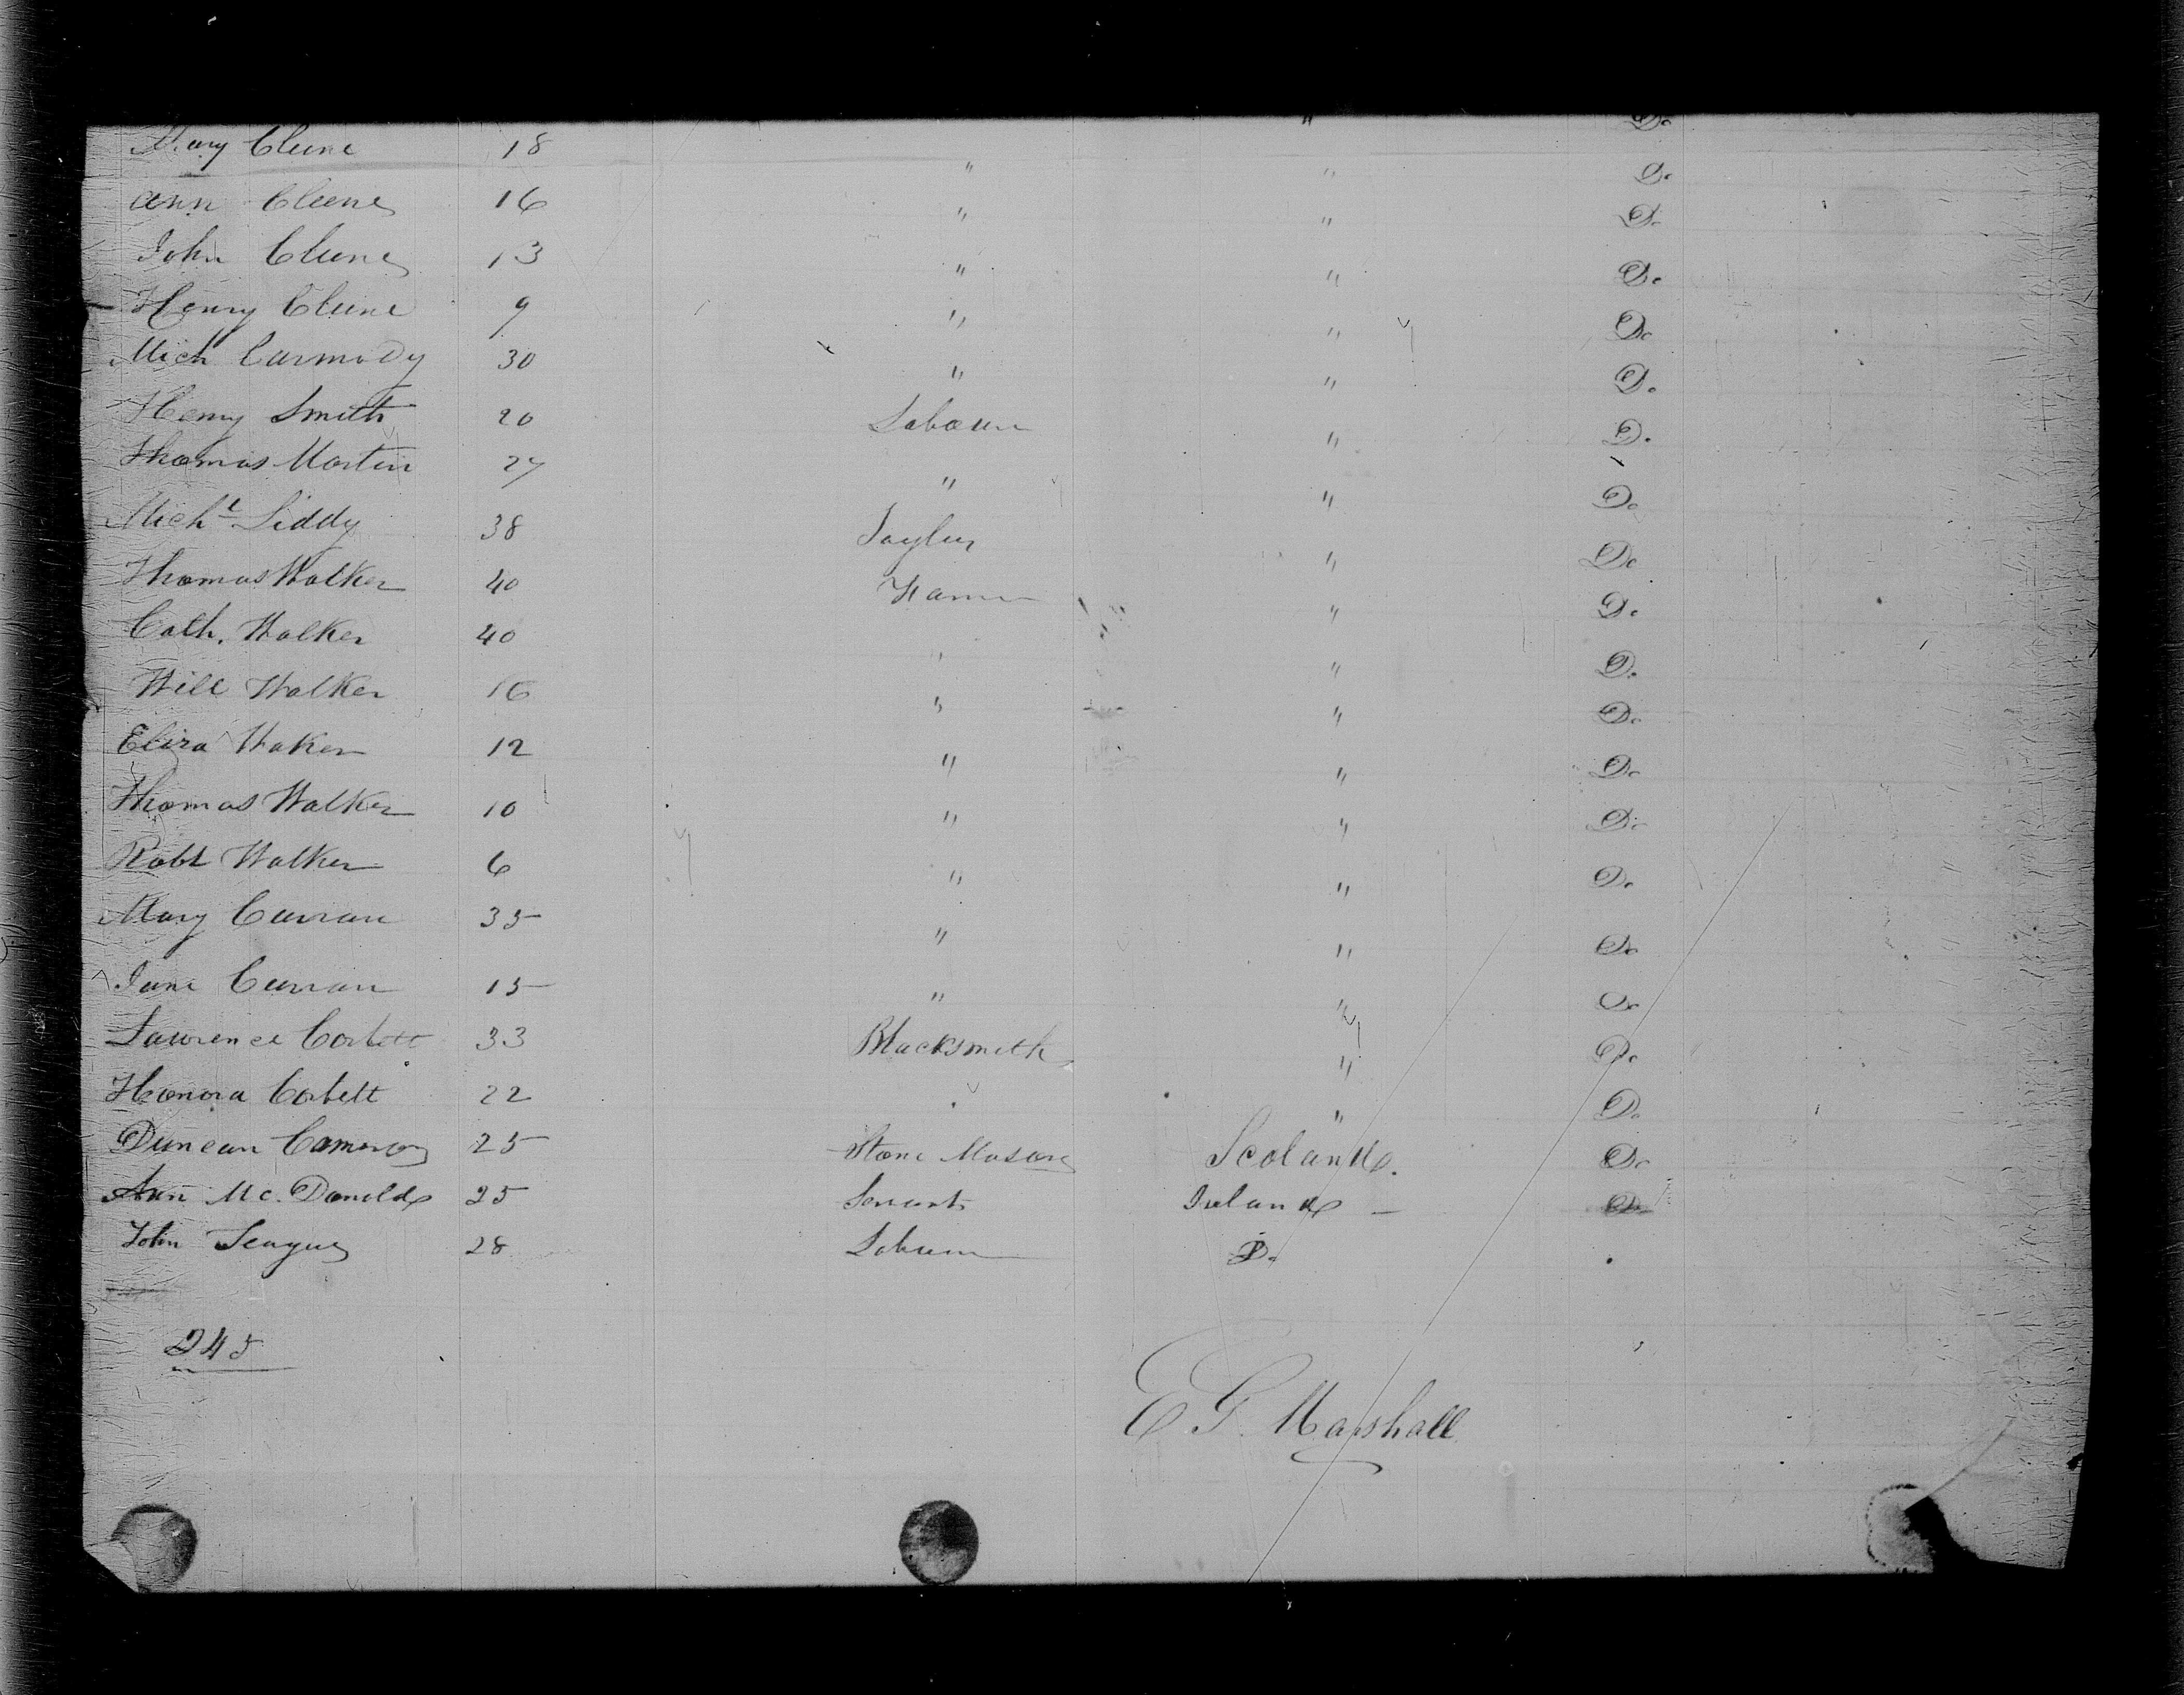 " Do
Mary Clune 18 " " Do
Ann Clune 16 " " Do
John Clune 13 " " Do
Henry Clune 9 " " Do
Mich Carmody 30 " " Do
Henry Smith 20 Labourer " Do
Thomas Martin 27 " " Do
Michl Liddy 38 Taylor " Do
Thomas Walker 40 Farmer " Do
Cath. Walker 40 " " Do
Will Walker 16 " " Do
Eliza Waker 12 " " Do
Thomas Walker 10 " " Do
Robt Walker 6 " " Do
Mary Curran 35 " " Do
Jane Curran 15 " " Do
Lawrence Corbett 33 Blacksmith " Do
Honora Corbett 22 " " Do
Duncan Cameron 25 Stone Mason Scoland. Do
Ann Mc. Donald 25 Servant Ireland - Do
John Teague 28 Labourer Do
245
E G Marshall